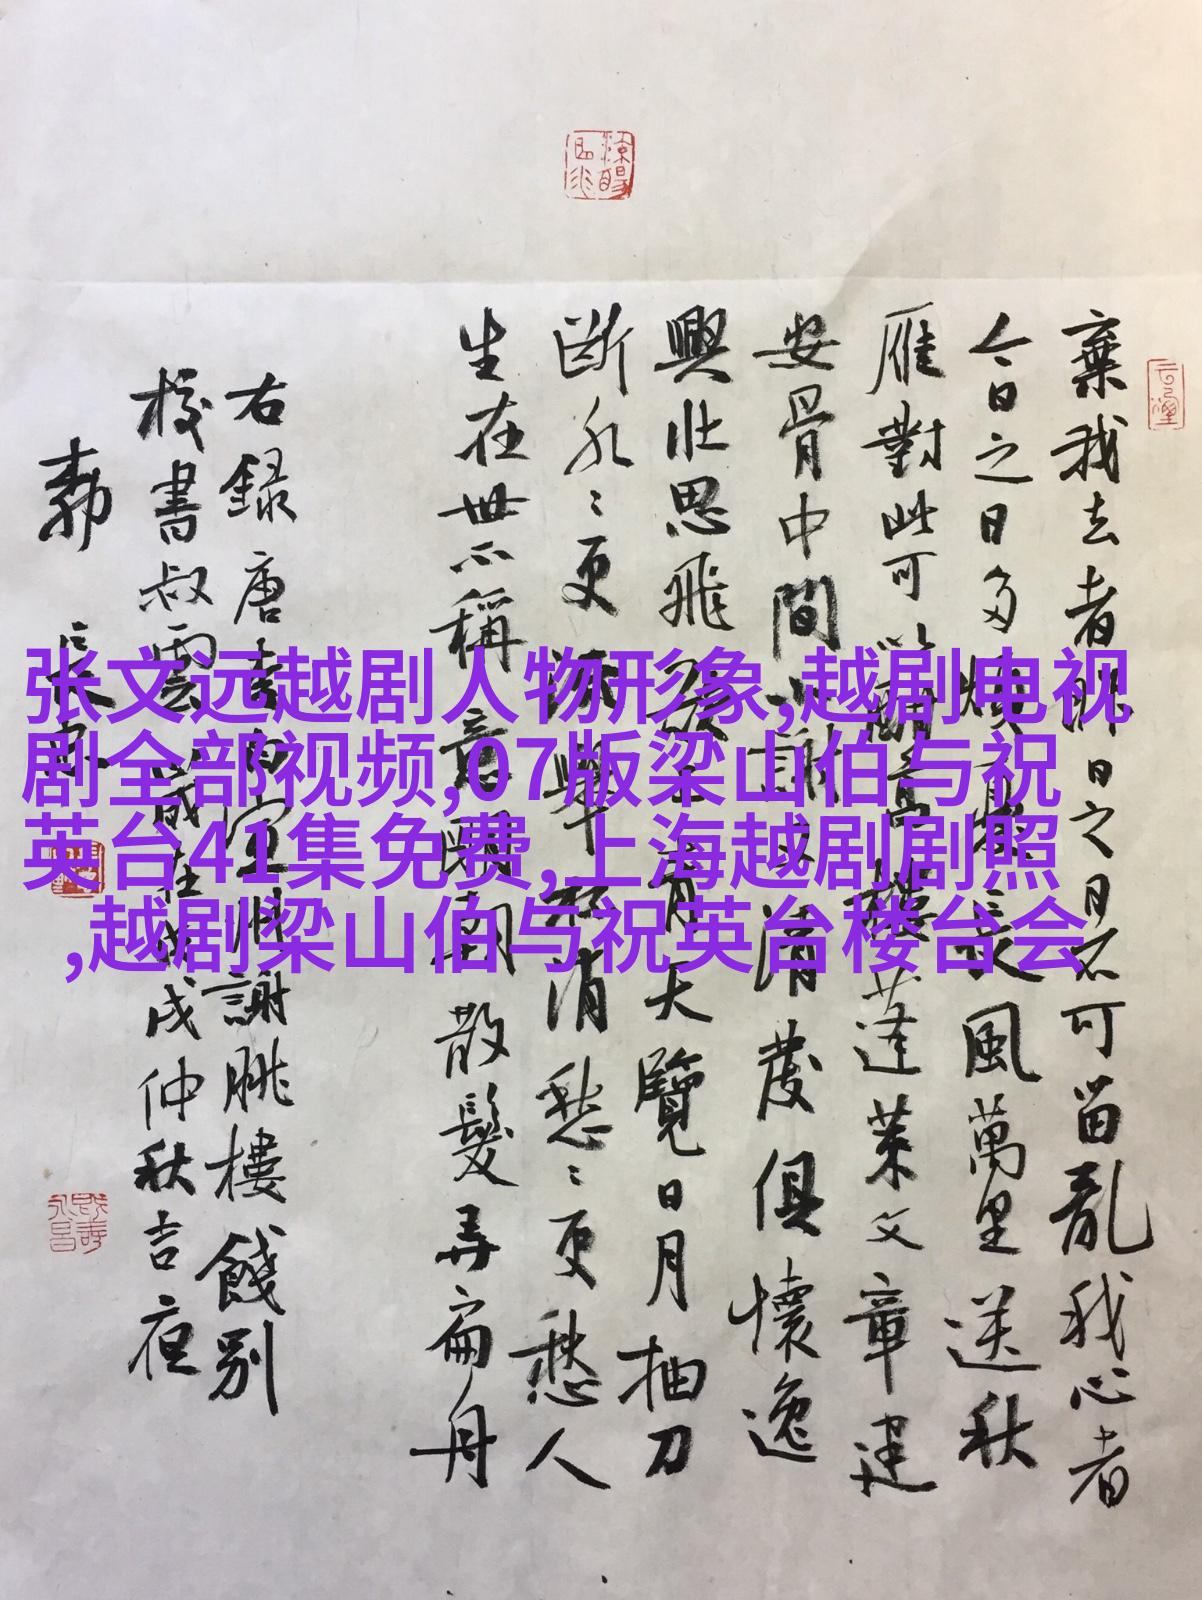 棄我去者昨日之日不可留亂我心者
今日之日多煩憂長風萬里送秋
雁對此可以酣高樓蓬萊文章建
安骨中間小謝又清發俱懷逸
興壯思飛欲上青天覽日月抽刀
斷水〻更流舉杯消愁〻更愁人
生在世不稱意明朝散髮弄扁舟
右録唐李白宣州謝朓樓餞別
校書叔雲歲在戊戌仲秋吉夜
張文远越剧人物形象,越剧电视
剧全部视频,07版梁山伯与祝
英台41集免费,上海越剧剧照
,越剧梁山伯与祝英台楼台会